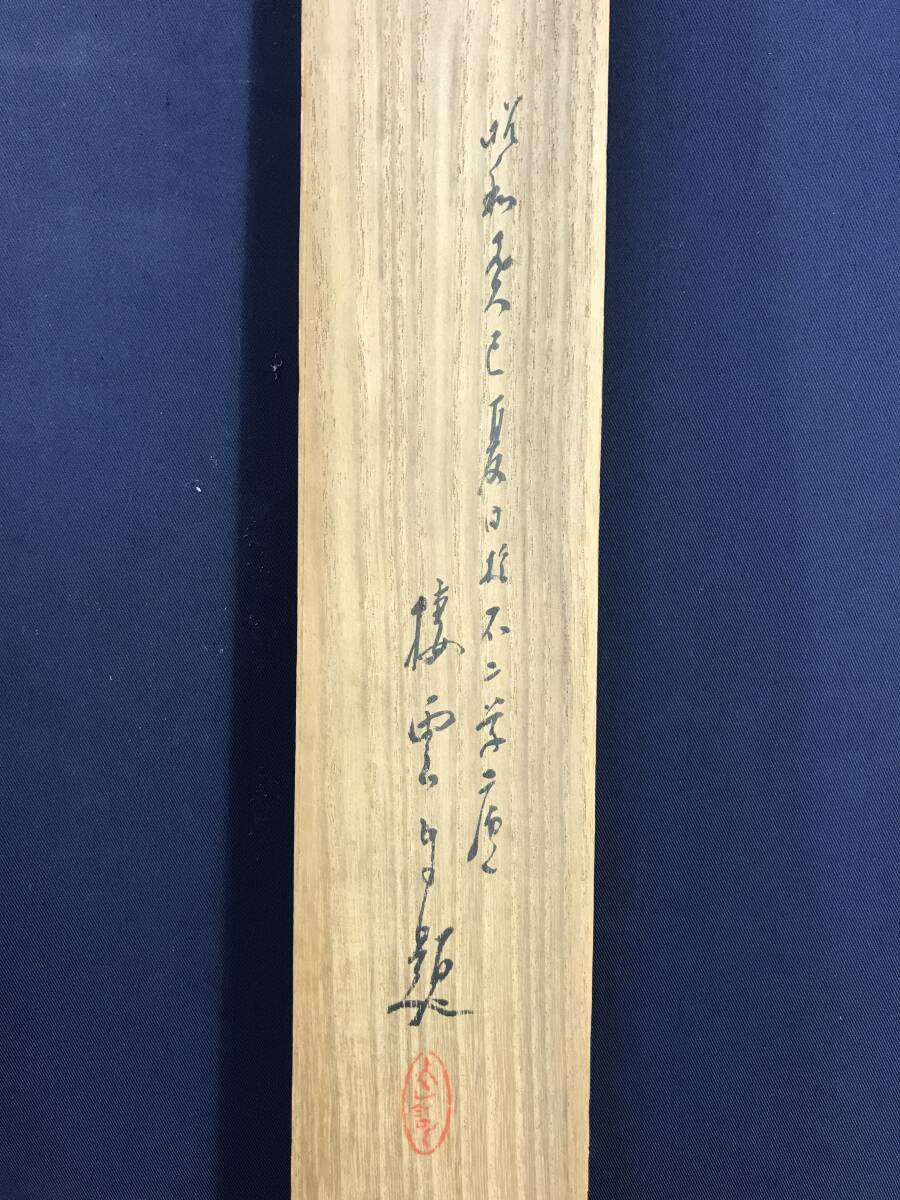 昭和癸巳夏日於不二草廬
棲雲自題